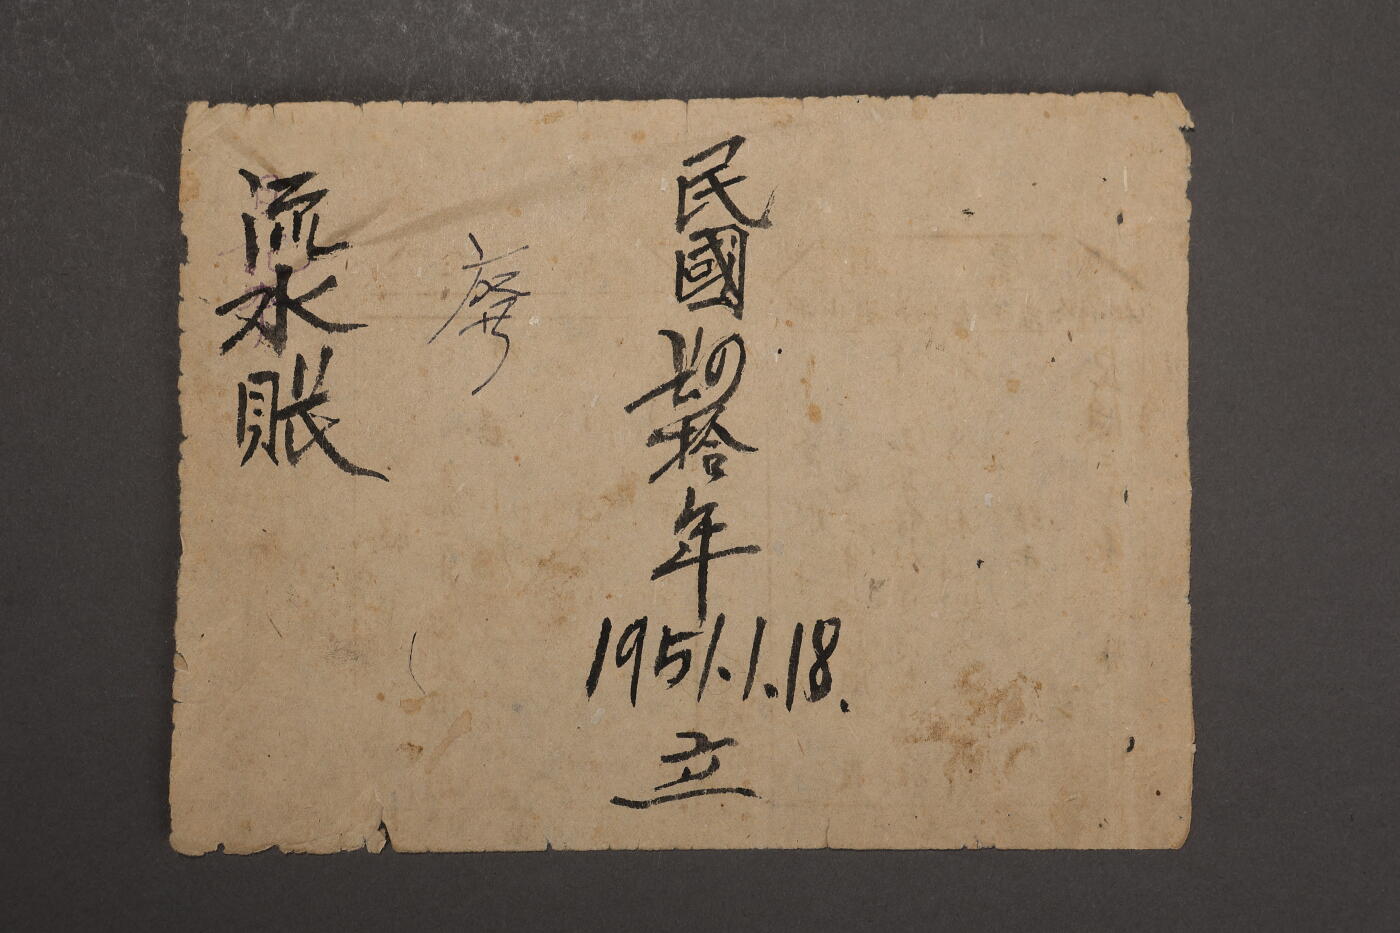 民國肆拾年
1951.1.18.
立
流水賬